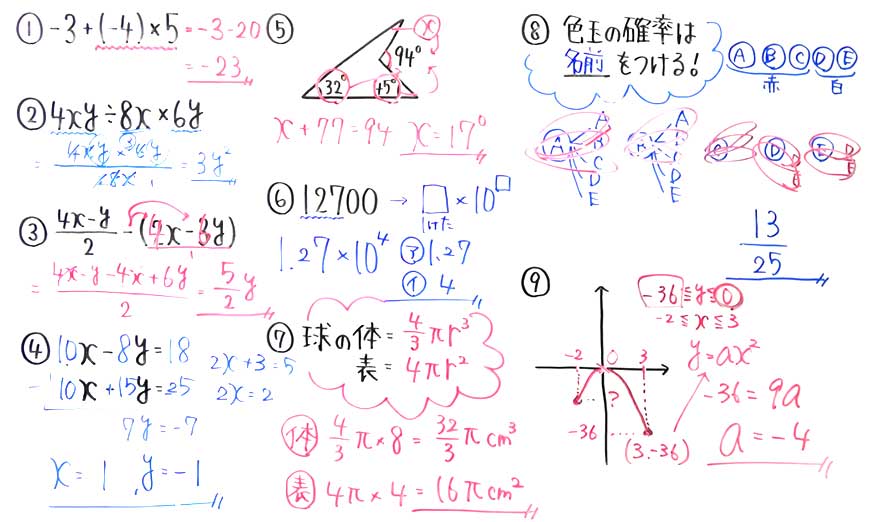 ① -3+(-4)×5 = -3-20
= -23
② 4xy÷8x×6y
= 3y²
③ (4x-y)/2 - (2x-3y)
= (4x-y-4x+6y)/2 = 5/2 y
④ 10x-8y=18
10x+15y=25
7y=-7
2x+3=5
2x=2
x=1, y=-1
⑤ x
94°
32° 45°
x+77=94 x=17°
⑥ 12700 → □×10□
1けた
1.27×10⁴ ア 1.27
イ 4
⑦ 球の体=4/3πr³
表=4πr²
体 4/3π×8=32/3πcm³
表 4π×4=16πcm²
⑧ 色玉の確率は
名前をつける!
A B C D E
赤 白
A
B
C
D
E
A
B
C
D
E
C D E
13/25
⑨ -36≦y≦0
-2≦x≦3
-2 0 3
?
-36
(3,-36)
y=ax²
-36=9a
a=-4